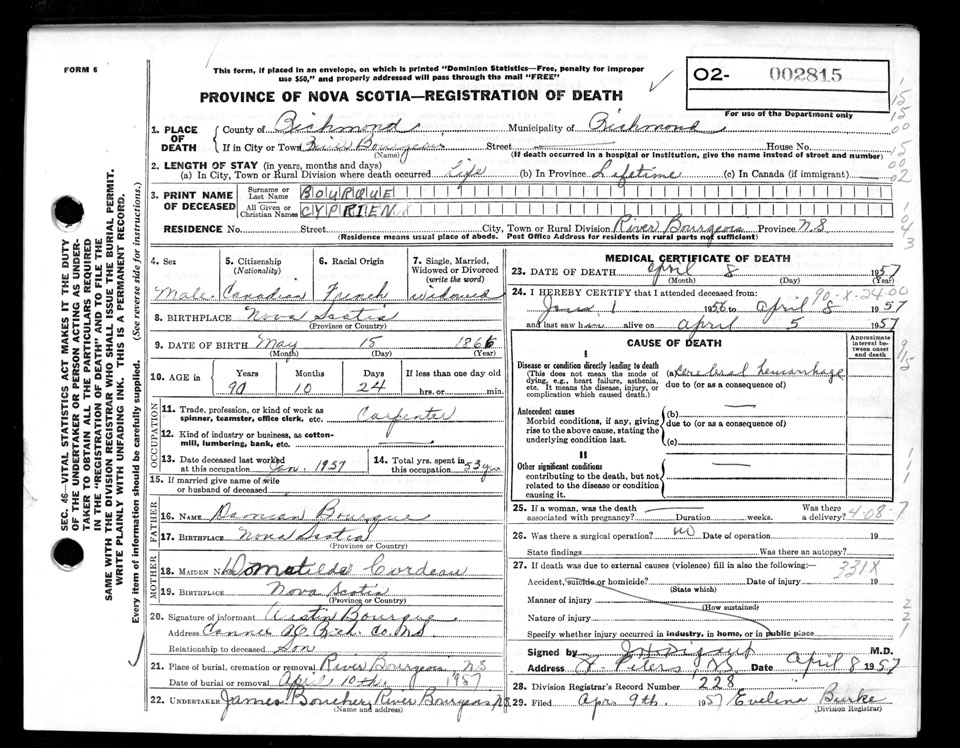 FORM 6
This form, if placed in an envelope, on which is printed "Dominion Statistics—Free, penalty for improper
use $50," and properly addressed will pass through the mail "FREE"
PROVINCE OF NOVA SCOTIA—REGISTRATION OF DEATH
O2- 002815
For use of the Department only
SEC. 46—VITAL STATISTICS ACT MAKES IT THE DUTY
OF THE UNDERTAKER OR PERSON ACTING AS UNDER-
TAKER TO OBTAIN ALL THE PARTICULARS REQUIRED
IN THE "REGISTRATION OF DEATH" AND TO FILE THE
SAME WITH THE DIVISION REGISTRAR WHO SHALL ISSUE THE BURIAL PERMIT.
WRITE PLAINLY WITH UNFADING INK. THIS IS A PERMANENT RECORD.
Every item of information should be carefully supplied. (See reverse side for instructions.)
1. PLACE OF DEATH
County of Richmond Municipality of Richmond
If in City or Town River Bourgeois Street House No.
(Name) (If death occurred in a hospital or institution, give the name instead of street and number)
2. LENGTH OF STAY (in years, months and days)
(a) In City, Town or Rural Division where death occurred Life (b) In Province Lifetime (c) In Canada (if immigrant)
3. PRINT NAME OF DECEASED
Surname or Last Name BOURQUE
All Given or Christian Names CYPRIEN
RESIDENCE No. Street City, Town or Rural Division River Bourgeois Province N.S
(Residence means usual place of abode. Post Office Address for residents in rural parts not sufficient)
4. Sex
Male
5. Citizenship
(Nationality)
Canadian
6. Racial Origin
French
7. Single, Married,
Widowed or Divorced
(write the word)
widowed
8. BIRTHPLACE Nova Scotia
(Province or Country)
9. DATE OF BIRTH May 15 1866
(Month) (Day) (Year)
10. AGE in Years Months Days If less than one day old
90 10 24 hrs. or min.
OCCUPATION
11. Trade, profession, or kind of work as
spinner, teamster, office clerk, etc. Carpenter
12. Kind of industry or business, as cotton-
mill, lumbering, bank, etc.
13. Date deceased last worked
at this occupation Jan. 1957
14. Total yrs. spent in
this occupation 53 yrs
15. If married give name of wife
or husband of deceased
FATHER
16. Name Damien Bourque
17. Birthplace Nova Scotia
(Province or Country)
MOTHER
18. Maiden Name Domatilde Cordeau
19. Birthplace Nova Scotia
(Province or Country)
20. Signature of informant Austin Bourque
Address Rich. Co. N.S
Relationship to deceased Son
21. Place of burial, cremation or removal River Bourgeois N.S
Date of burial or removal April 10th. 1957
22. UNDERTAKER James Boucher, River Bourgeois N.S.
(Name and address)
MEDICAL CERTIFICATE OF DEATH
23. DATE OF DEATH April 8 1957
(Month) (Day) (Year)
24. I HEREBY CERTIFY that I attended deceased from: 90-X-24-00
1 1956 to April 8 1957
and last saw h alive on April 5 1957
CAUSE OF DEATH
Approximate
interval between
onset
and death
I
Disease or condition directly leading to death
(This does not mean the mode of
dying, e.g., heart failure, asthenia,
etc. It means the disease, injury, or
complication which caused death.)
(a) Cerebral hemorrhage
due to (or as a consequence of)
Antecedent causes
Morbid conditions, if any, giving
rise to the above cause, stating the
underlying condition last.
(b)
due to (or as a consequence of)
(c)
II
Other significant conditions
contributing to the death, but not
related to the disease or condition
causing it.
25. If a woman, was the death Was there
associated with pregnancy? Duration weeks. a delivery? 4-08-7
26. Was there a surgical operation? no Date of operation 19
State findings Was there an autopsy?
27. If death was due to external causes (violence) fill in also the following:—
331X
Accident, suicide or homicide? Date of injury 19
(State which)
Manner of injury
(How sustained)
Nature of injury
Specify whether injury occurred in industry, in home, or in public place
Signed by M.D.
Address St. Peters, N.S Date April 8 1957
28. Division Registrar's Record Number 228
29. Filed Apr. 9th. 1957 Evelina Burke
(Division Registrar)